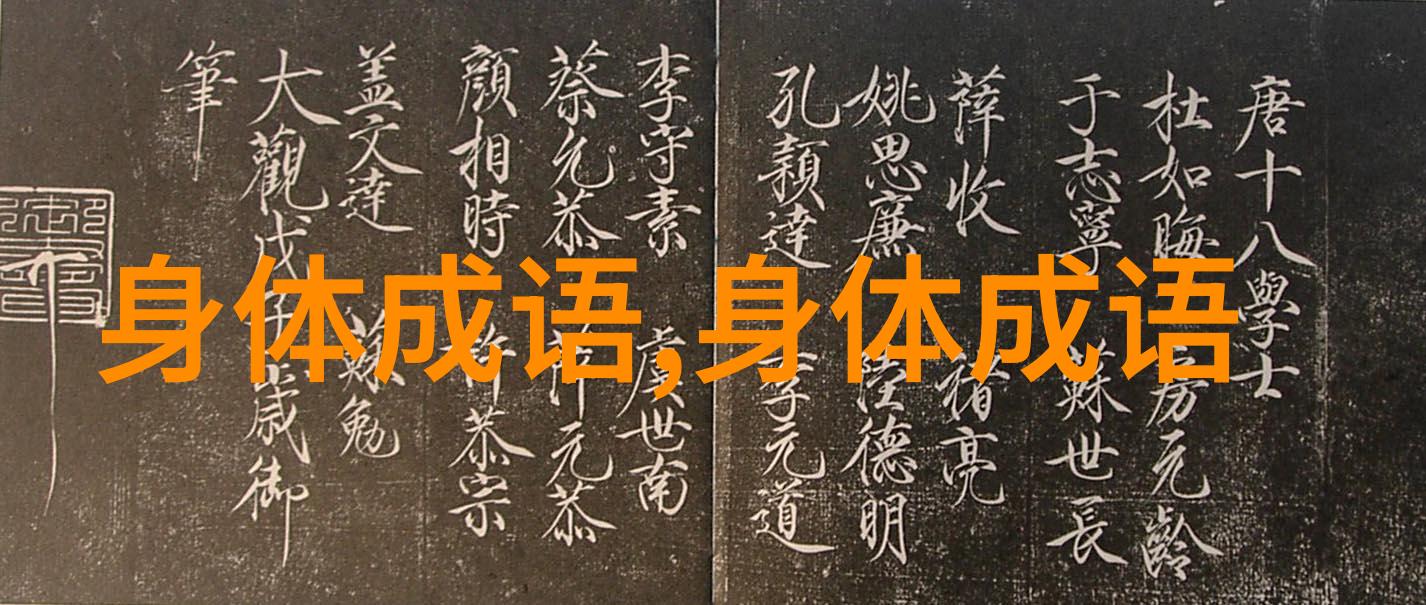 身体成语,身体成语
唐十八學士
杜如晦 房元齡
于志寧 蘇世長
薛收 褚亮
姚思廉 陸德明
孔穎達 李元道
李守素 虞世南
蔡允恭 元恭
顏相時 許恭宗
盖文達 蘇勉
大觀戊子歲御
筆